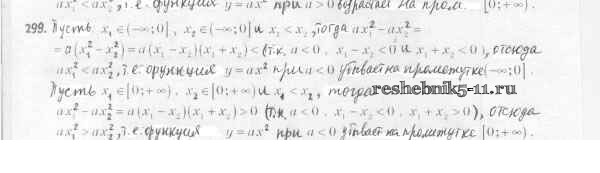 ax₁² < ax₂², т.е. функция y = ax² при a > 0 возрастает на пром. [0;+∞).
299. Пусть x₁∈(-∞;0], x₂∈(-∞;0] и x₁ < x₂, тогда ax₁² - ax₂² =
= a(x₁² - x₂²) = a(x₁ - x₂)(x₁ + x₂) < (т.к. a < 0, x₁ - x₂ < 0 и x₁ + x₂ < 0), отсюда
ax₁² < ax₂², т.е. функция y = ax² при a < 0 убывает на промежутке (-∞;0].
Пусть x₁∈[0;+∞), x₂∈[0;+∞) и x₁ < x₂, тогда
reshebnik5-11.ru
ax₁² - ax₂² = a(x₁ - x₂)(x₁ + x₂) > 0 (т.к. a < 0, x₁ - x₂ < 0, x₁ + x₂ > 0), отсюда
ax₁² > ax₂², т.е. функция y = ax² при a < 0 убывает на промежутке [0;+∞).